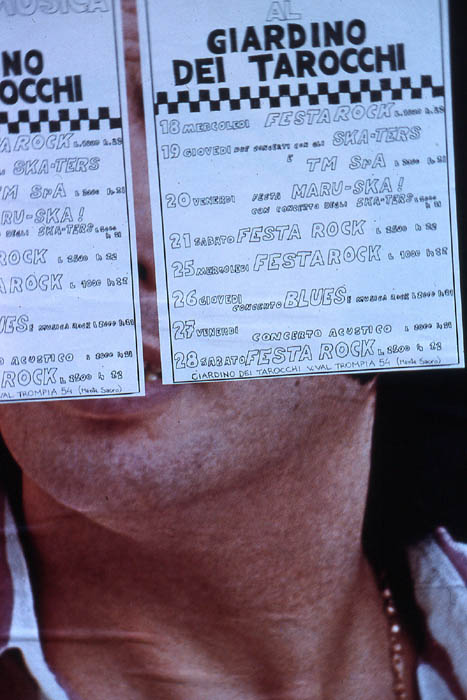 MUSICA
NO
OCCHI
A ROCK L. 2500 h. 22
SKA-TERS
TM SPA L 2000 h 21
RU-SKA!
DEGLI SKA-TERS
ROCK L 2500 h 22
A ROCK L 1000 h 22
UES E MUSICA ROCK L 2000 h. 21
O ACUSTICO L 2000 h. 21
ROCK L. 2500 h 22
VAL TROMPIA 54 (Monte Sacro)
AL
GIARDINO
DEI TAROCCHI
18 MERCOLEDI FESTA ROCK L. 2500 h. 22
19 GIOVEDI DUE CONCERTI CON GLI SKA-TERS
E TM SPA L 2000 h. 21
20 VENERDI FESTA MARU-SKA!
CON CONCERTO DEGLI SKA-TERS L 2000 h 21
21 SABATO FESTA ROCK L 2500 h 22
25 MERCOLEDI FESTA ROCK L 1000 h 22
26 GIOVEDI CONCERTO BLUES E MUSICA ROCK L 2000 h. 21
27 VENERDI CONCERTO ACUSTICO L 2000 h. 21
28 SABATO FESTA ROCK L. 2500 h 22
GIARDINO DEI TAROCCHI VAL TROMPIA 54 (Monte Sacro)